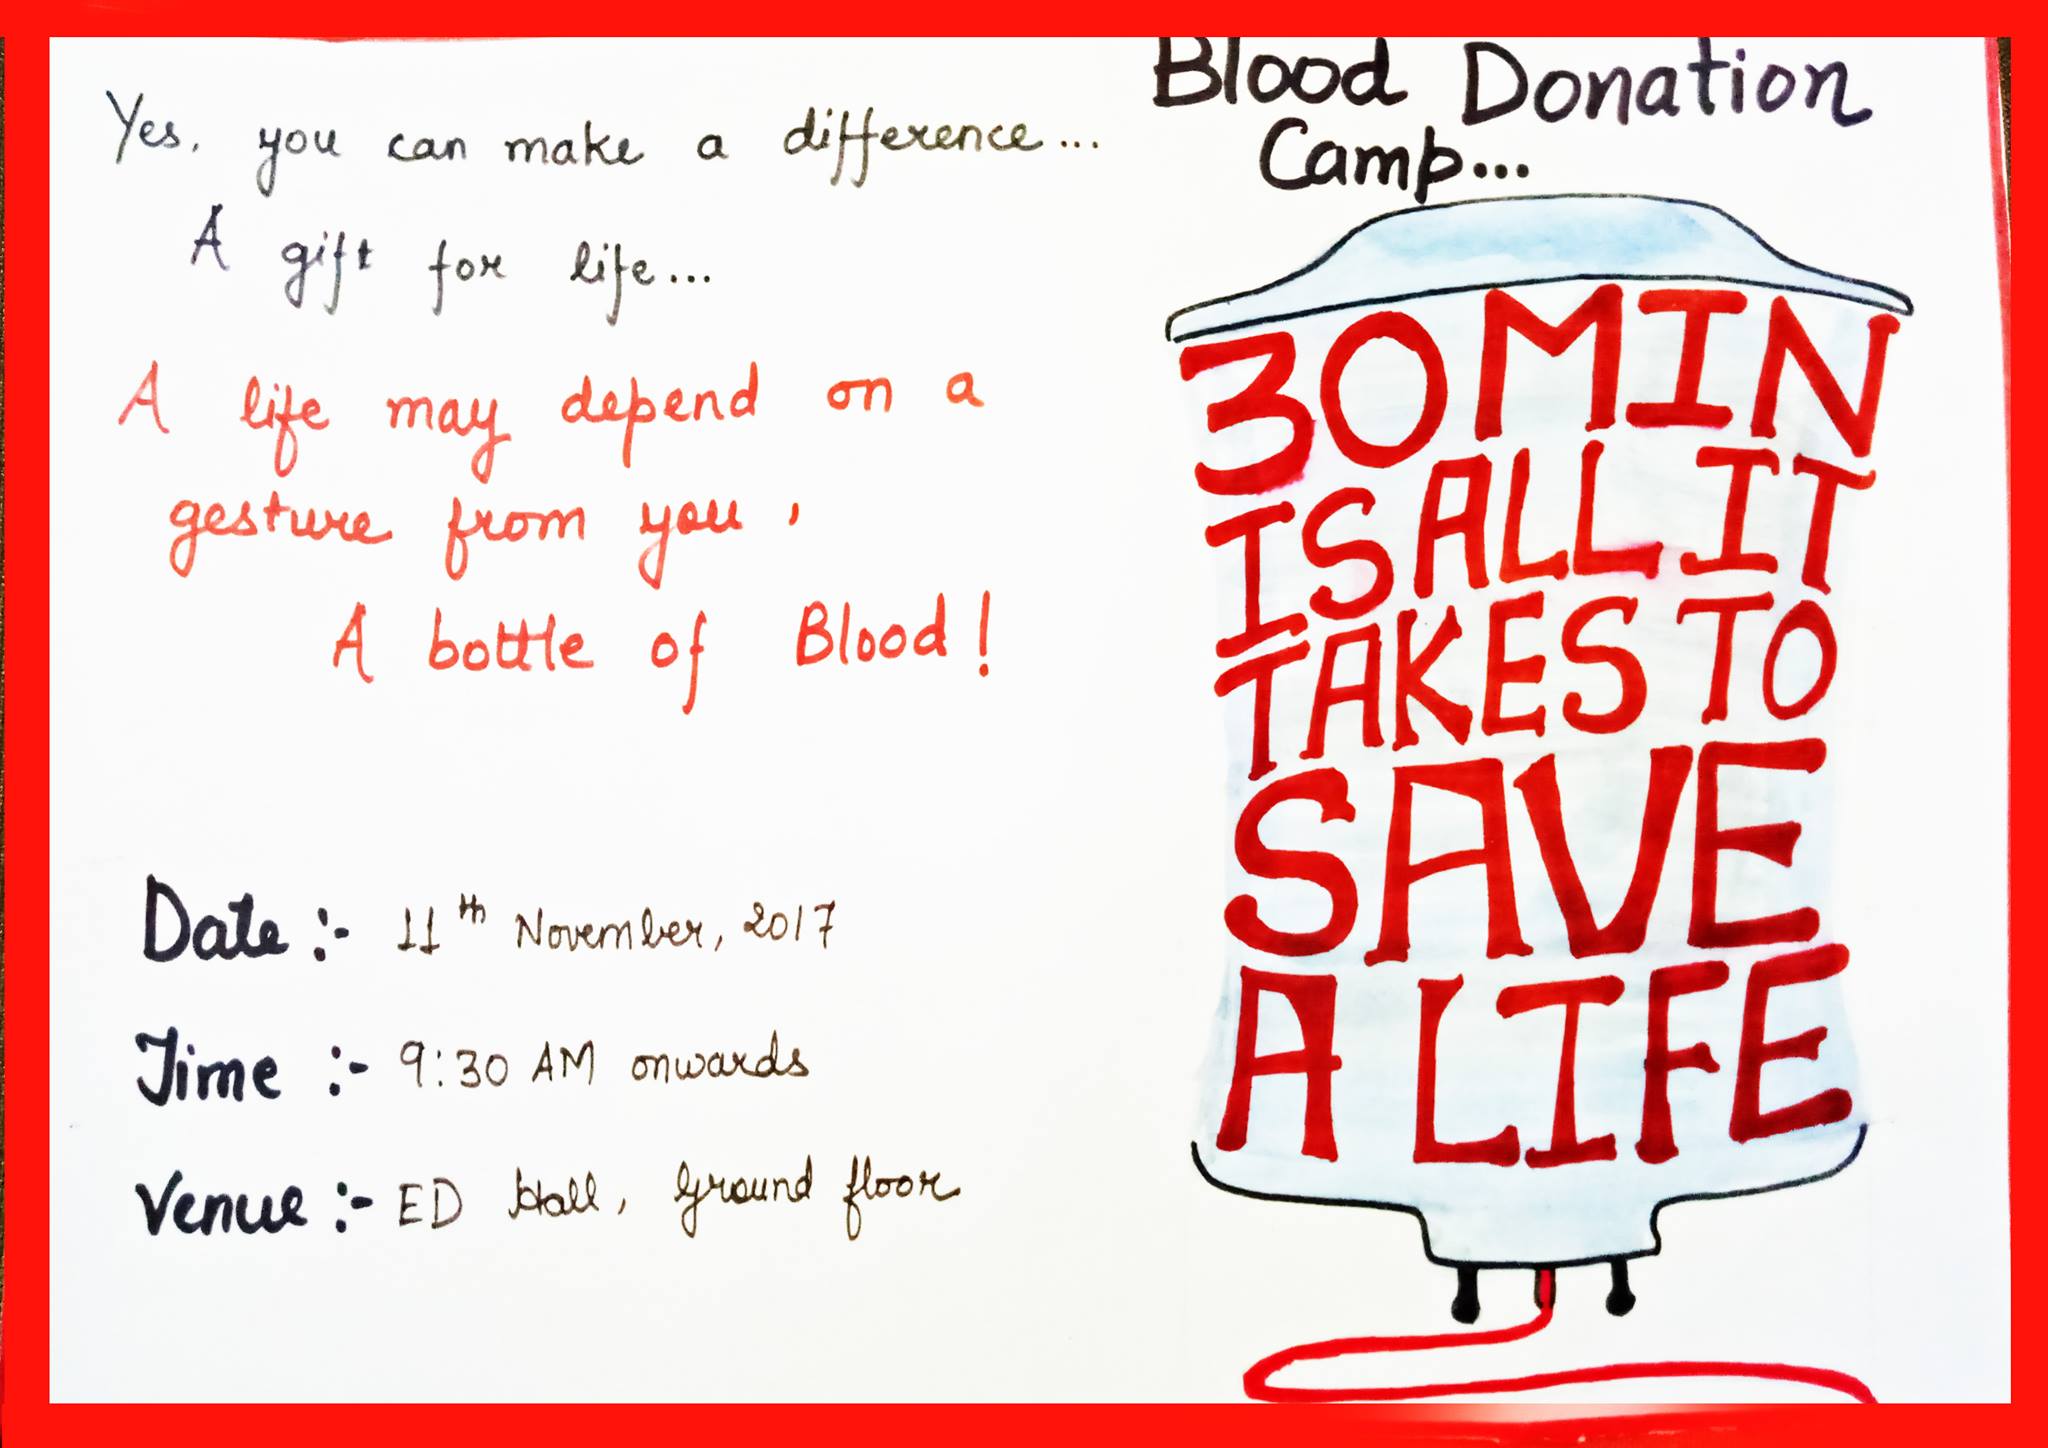 Yes, you can make a difference...
A gift for life...
A life may depend on a
gesture from you,
A bottle of Blood!
Date :- 11th November, 2017
Time :- 9:30 AM onwards
Venue :- ED Hall, Ground floor
Blood Donation
Camp...
30 MIN
IS ALL IT
TAKES TO
SAVE
A LIFE